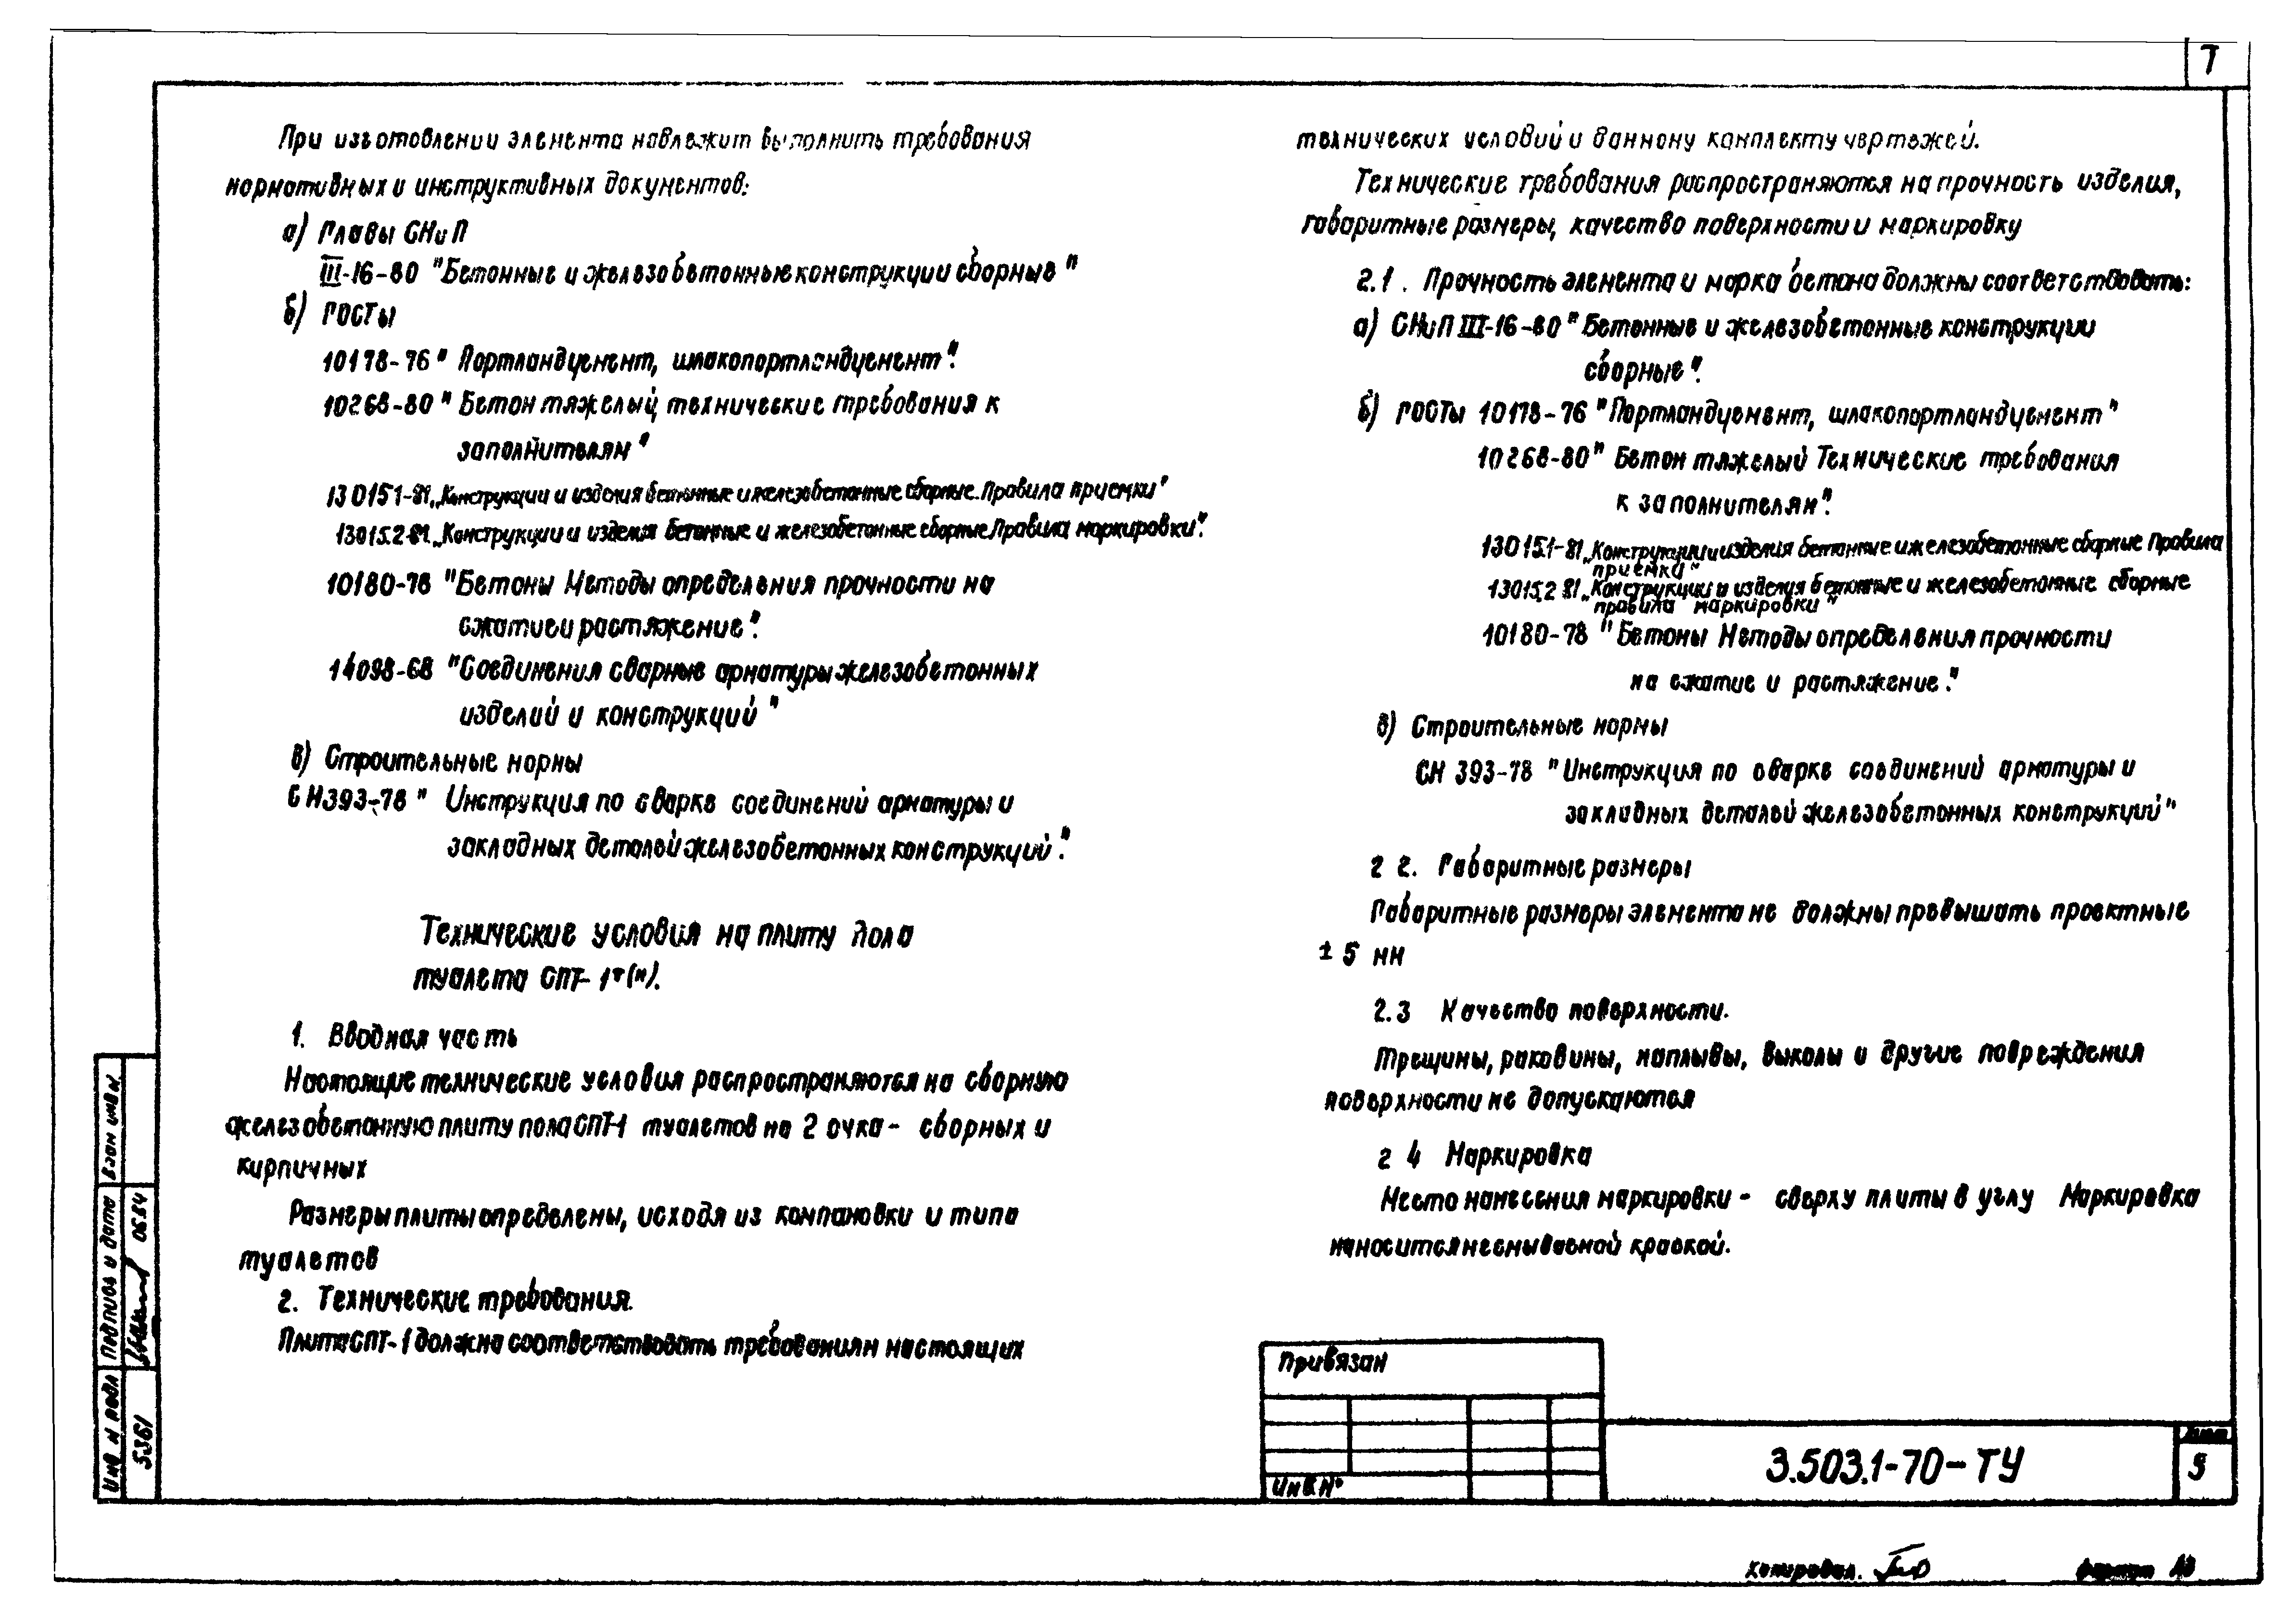 7
При изготовлении элемента надлежит выполнить требования
нормативных и инструктивных документов:
а) Главы СНиП
III-16-80 "Бетонные и железобетонные конструкции сборные"
б) ГОСТы
10178-76 "Портландцемент, шлакопортландцемент".
10268-80 "Бетон тяжелый, технические требования к
заполнителям"
13015.1-81 „Конструкции и изделия бетонные и железобетонные сборные. Правила приемки"
13015.2-81 „Конструкции и изделия бетонные и железобетонные сборные Правила маркировки".
10180-78 "Бетоны Методы определения прочности на
сжатие и растяжение".
14098-68 "Соединения сварные арматуры железобетонных
изделий и конструкций"
в) Строительные нормы
СН393-78 " Инструкция по сварке соединений арматуры и
закладных деталей железобетонных конструкций".
Технические условия на плиту пола
туалета СПТ-1т(м).
1. Вводная часть
Настоящие технические условия распространяются на сборную
железобетонную плиту пола СПТ-1 туалетов на 2 очка - сборных и
кирпичных
Размеры плиты определены, исходя из компановки и типа
туалетов
2. Технические требования.
Плита СПТ-1 должна соответствовать требованиям настоящих
технических условий и данному комплекту чертежей.
Технические требования распространяются на прочность изделия,
габаритные размеры, качество поверхности и маркировку
2.1. Прочность элемента и марка бетона должны соответствовать:
а) СНиП III-16-80 "Бетонные и железобетонные конструкции
сборные".
б) ГОСТы 10178-76 "Портландцемент, шлакопортландцемент"
10268-80 "Бетон тяжелый Технические требования
к заполнителям".
13015.1-81 „Конструкции и изделия бетонные и железобетонные сборные Правила
приемки"
13015.2 81 „Конструкции и изделия бетонные и железобетонные сборные
правила маркировки"
10180-78 "Бетоны Методы определения прочности
на сжатие и растяжение."
в) Строительные нормы
СН 393-78 "Инструкция по сварке соединений арматуры и
закладных деталей железобетонных конструкций"
2 2. Габаритные размеры
Габаритные размеры элемента не должны превышать проектные
± 5 мм
2.3 Качество поверхности.
Трещины, раковины, наплывы, выколы и другие повреждения
поверхности не допускаются
2 4 Маркировка
Место нанесения маркировки - сверху плиты в углу Маркировка
наносится несмываемой краской.
Привязан
Инв.№
3.503.1-70-ТУ
Лист
5
Взам инв №
Подпись и дата
06.84
Инв № подл
5361
Копировал.
Формат А3